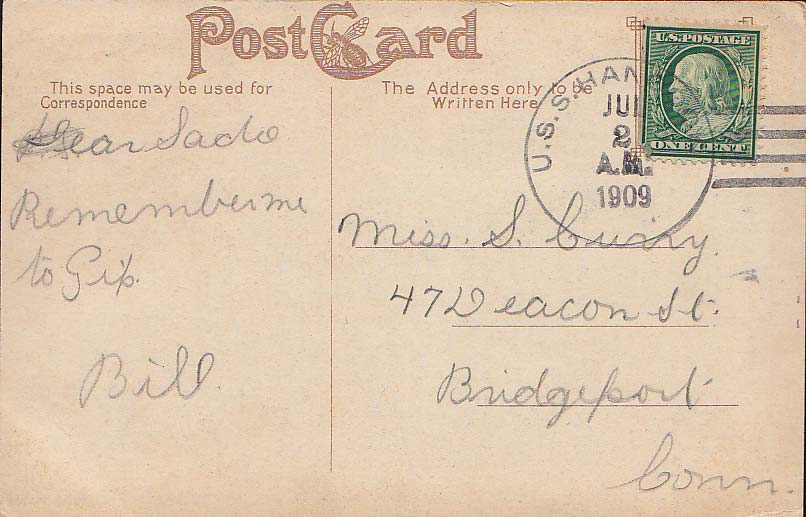 Post Card
This space may be used for
Correspondence
The Address only to be
Written Here
U.S. POSTAGE
ONE CENT
U.S.S. HAN
JUL
2
A.M.
1909
Dear Sado
Remember me
to Gip.
Bill.
Miss. S. Curry.
47 Deacon St.
Bridgeport
Conn.